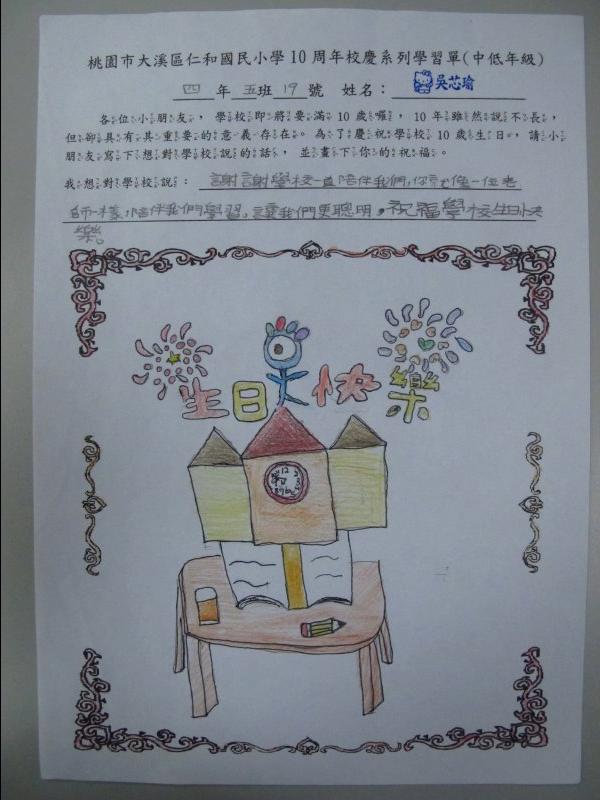 桃園市大溪區仁和國民小學10周年校慶系列學習單(中低年級)
四 年 五班 19 號 姓名: 吳芯瑜
各位小朋友,學校即將要滿10歲囉,10年雖然說不長,
但卻具有其重要的意義存在。為了慶祝學校10歲生日,請小
朋友寫下想對學校說的話,並畫下你的祝福。
我想對學校說: 謝謝學校一直陪伴我們,你就像一位老
師一樣,陪伴我們學習,讓我們更聰明,祝福學校生日快
樂。
生日大快樂